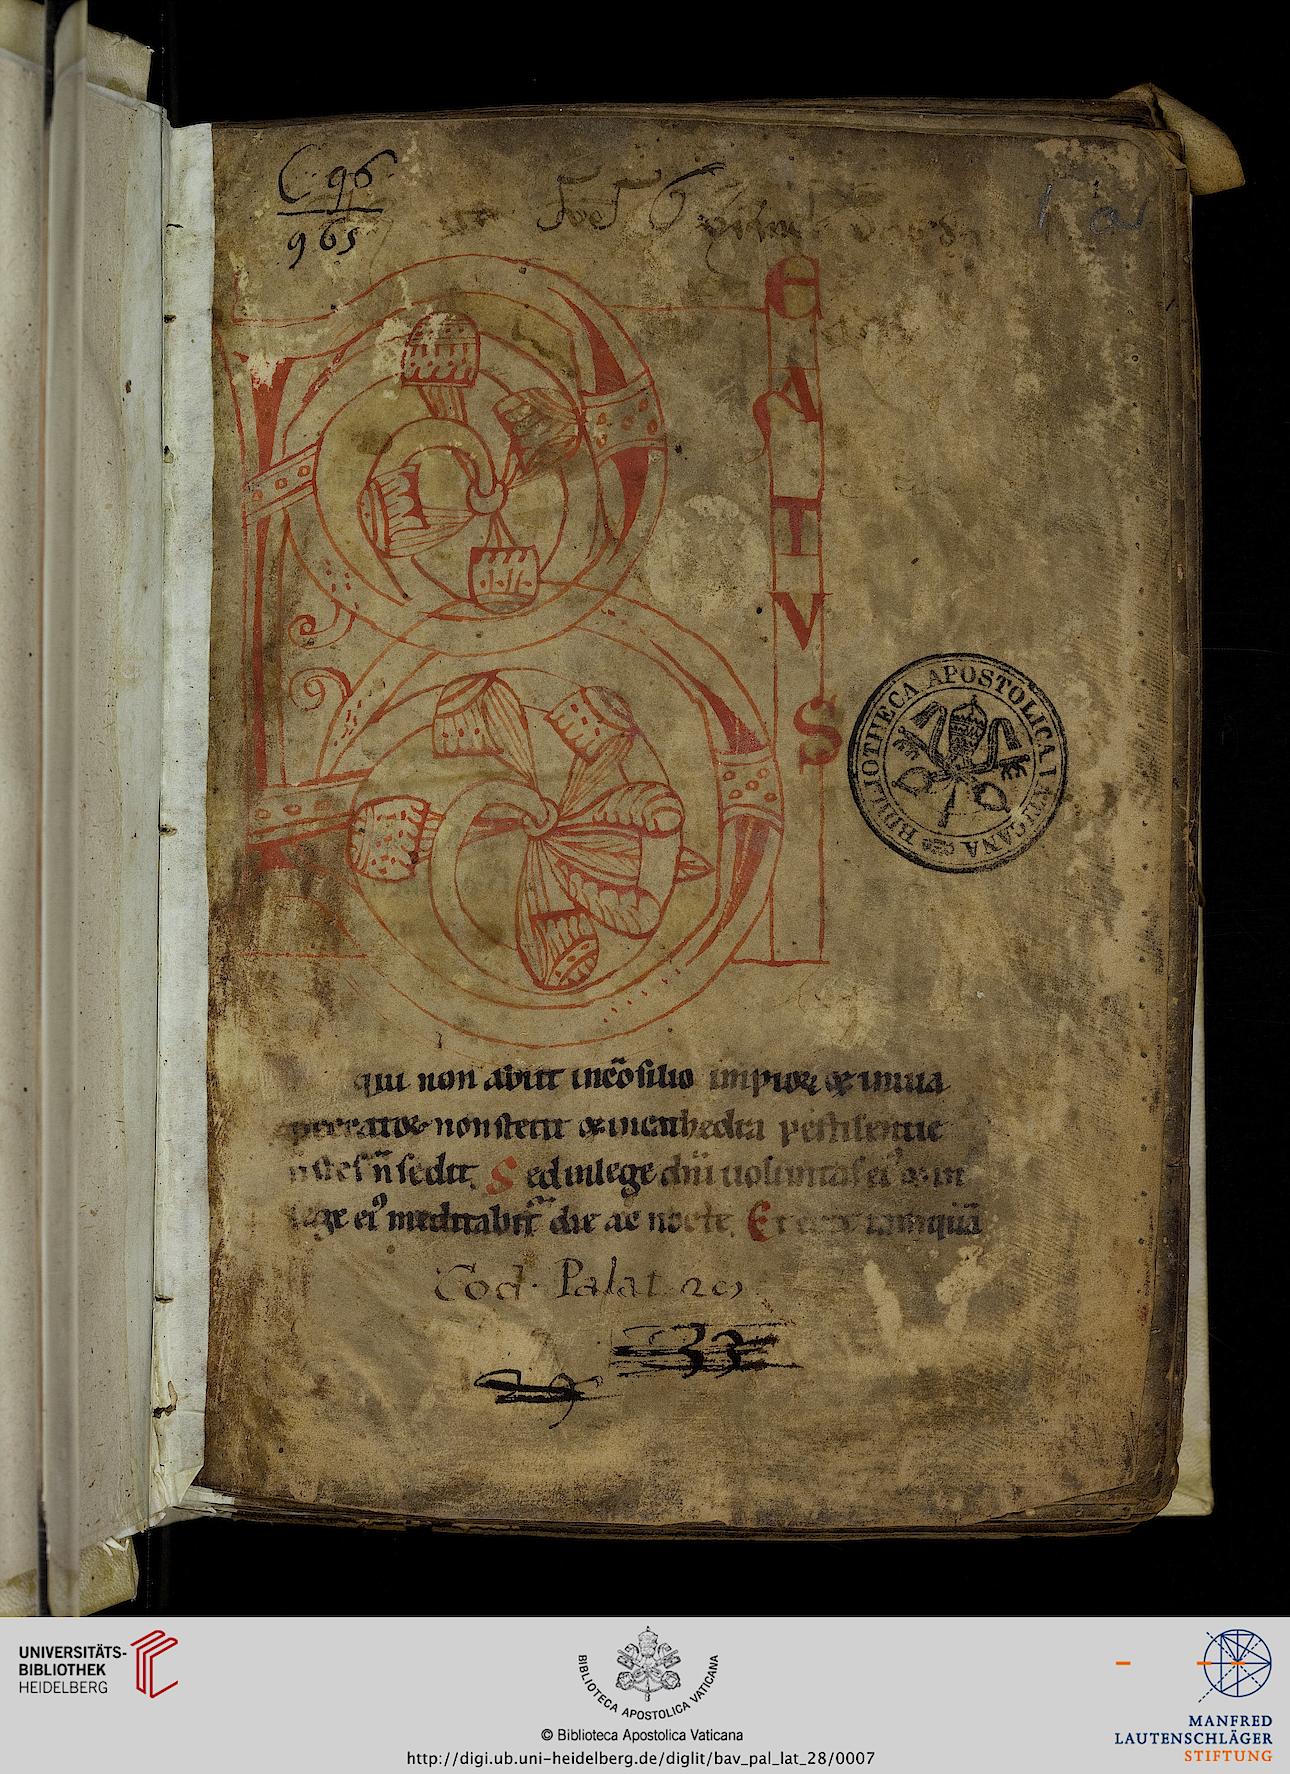 C. 96
965
B
E
A
T
V
S
BIBLIOTHECA APOSTOLICA VATICANA
qui non abiit incōsilio impioꝝ ⁊ inuia
peccatoꝝ non stetit ⁊ incathedra pestilentie
n̄ sedit. Sed inlege dn̄i uoluntas ei' ⁊ in
lege ei' meditabit̄ die ac nocte. Et erit tamquā
Cod. Palat
33
UNIVERSITÄTS-
BIBLIOTHEK
HEIDELBERG
BIBLIOTECA APOSTOLICA VATICANA
© Biblioteca Apostolica Vaticana
http://digi.ub.uni-heidelberg.de/diglit/bav_pal_lat_28/0007
MANFRED
LAUTENSCHLÄGER
STIFTUNG